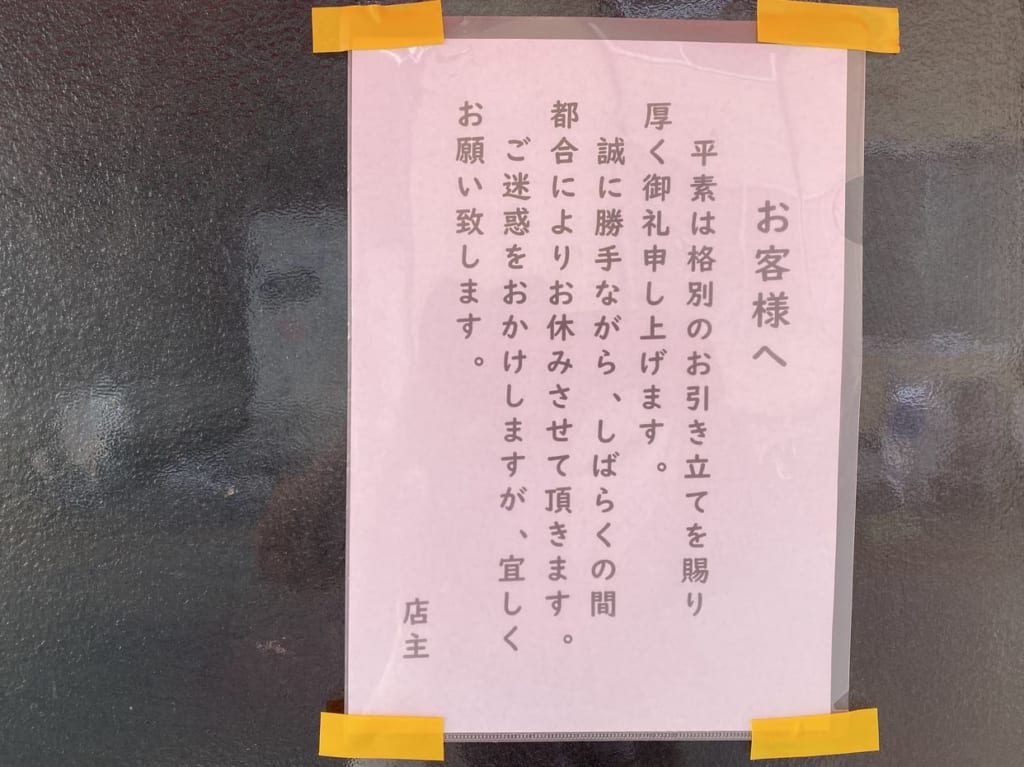 お客様へ
平素は格別のお引き立てを賜り
厚く御礼申し上げます。
誠に勝手ながら、しばらくの間
都合によりお休みさせて頂きます。
ご迷惑をおかけしますが、宜しく
お願い致します。
店主